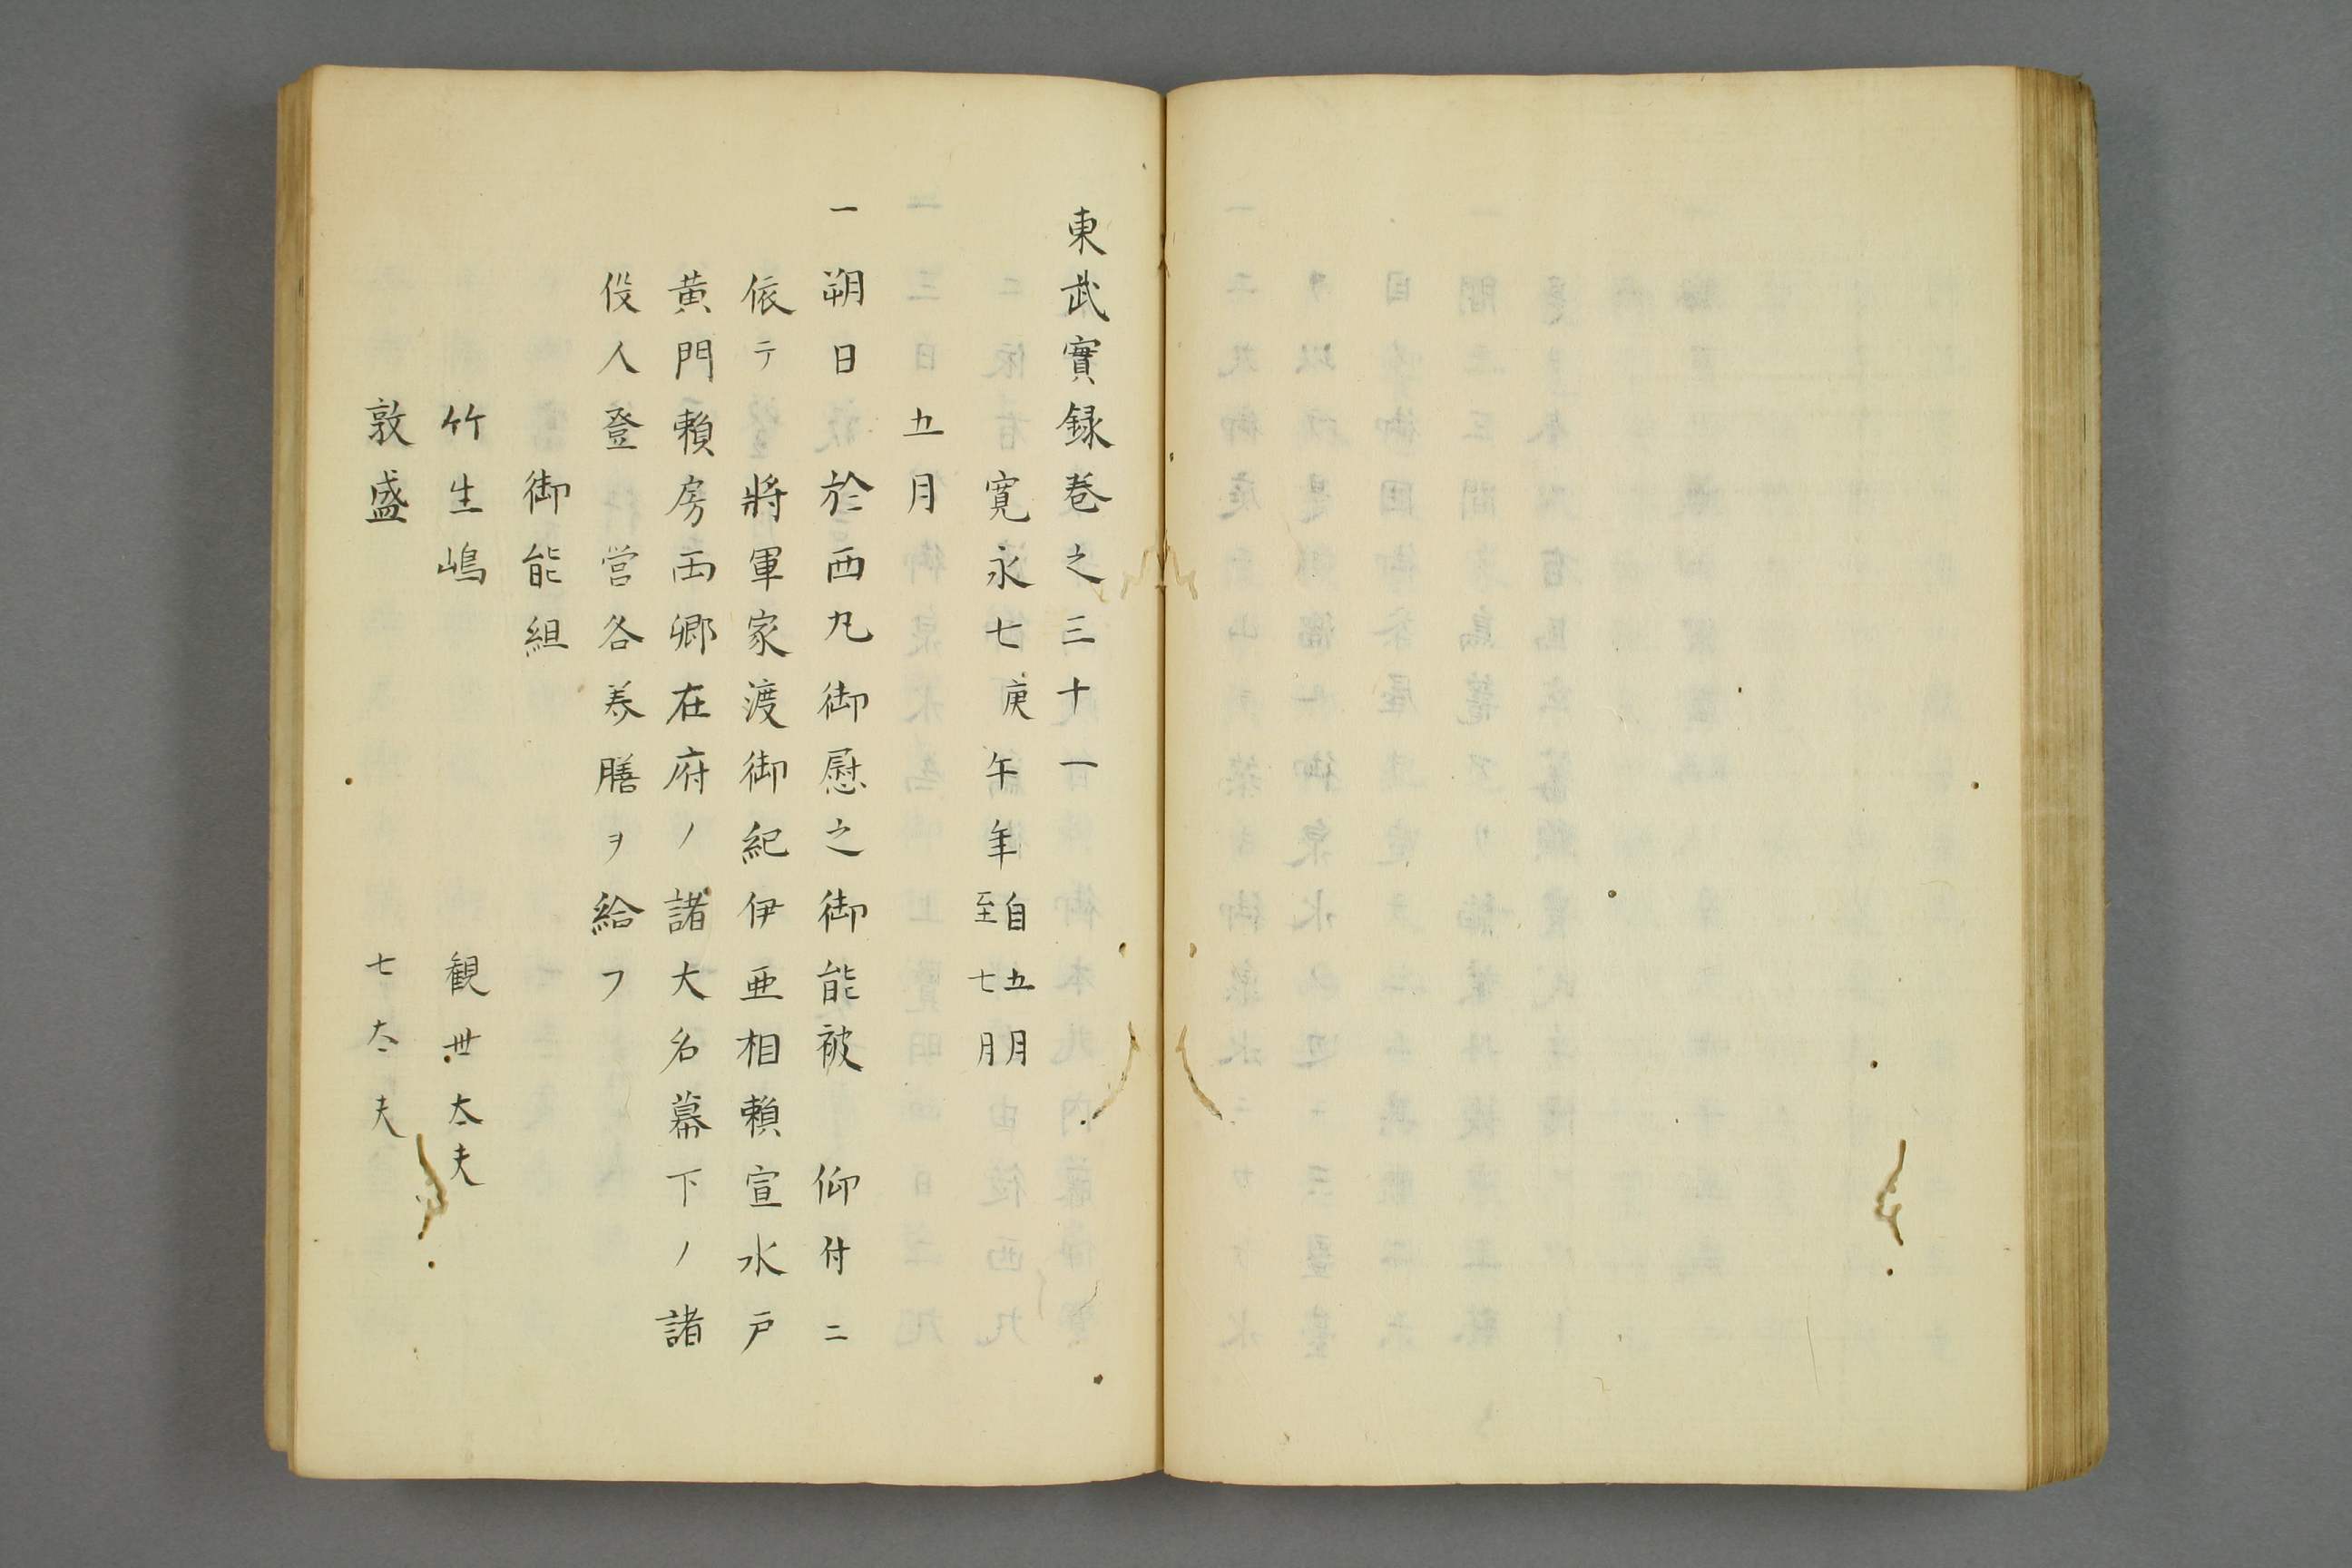 東武實録巻之三十一
寛永七庚午年自五月至七月
五月
一朔日於西丸御慰之御能被 仰付ニ
依テ 將軍家渡御紀伊亜相頼宣水戸
黄門頼房両卿在府ノ諸大名幕下ノ諸
役人登営各養膳ヲ給フ
御能組
竹生嶋 観世太夫
敦盛 七太夫